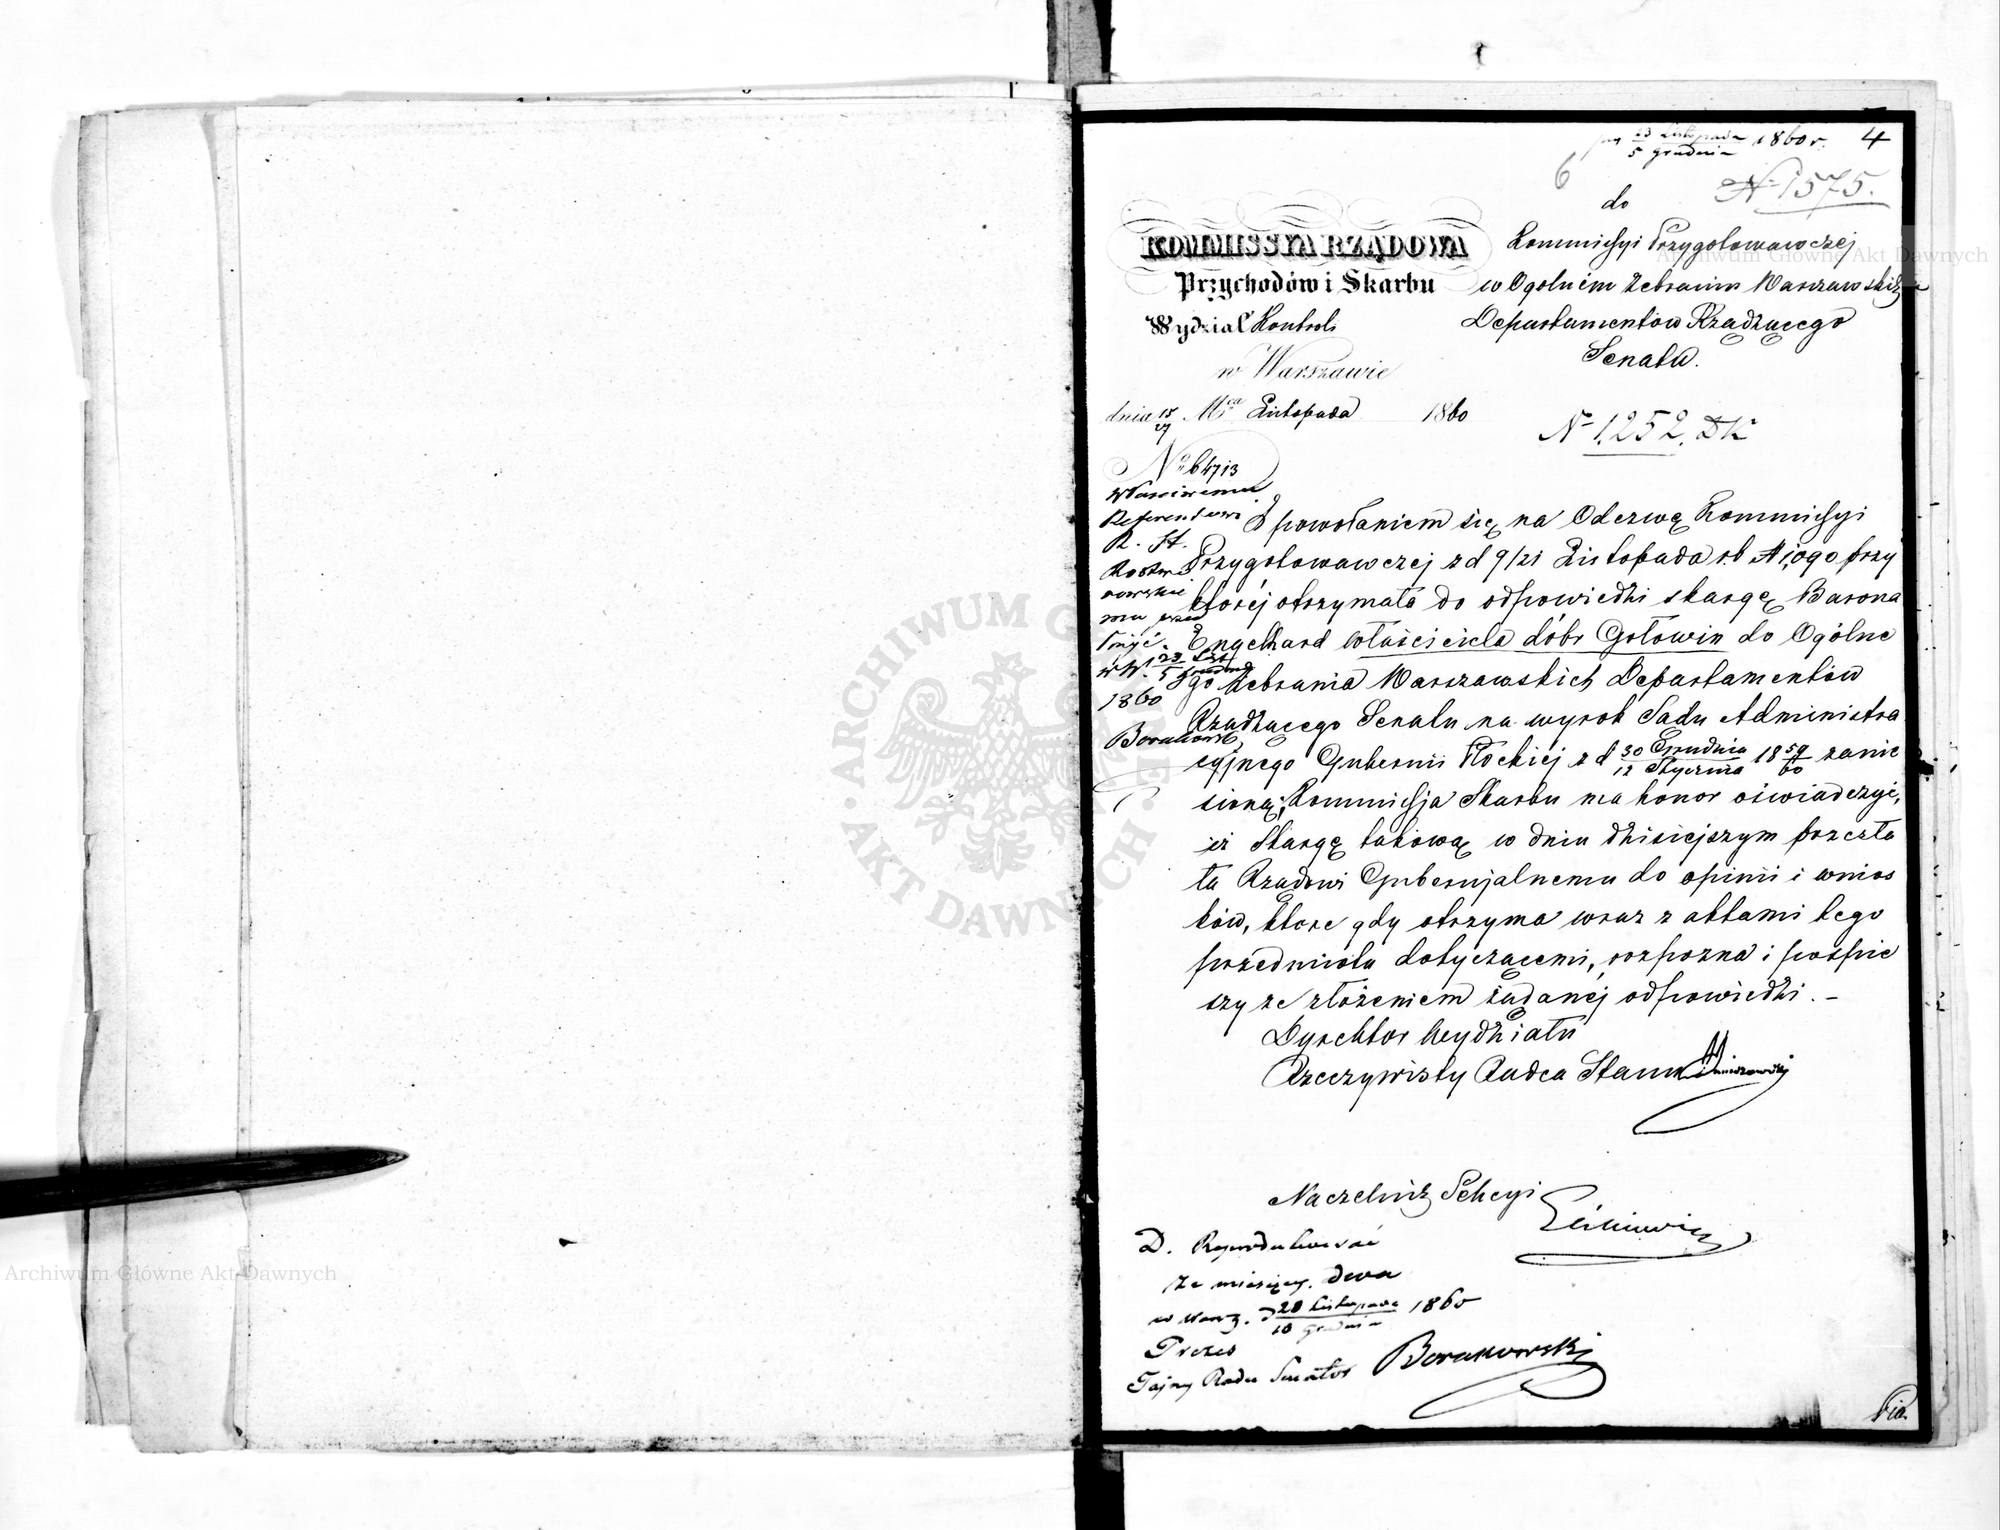 23 Listopada
5 Grudnia 1860 r. 4
6
N 1575.
do
KOMMISSYA RZĄDOWA
Przychodów i Skarbu
Wydział Kontroli
w Warszawie
dnia 15/27 Mca Listopada 1860
No 64713
Kommissyi Przygotowawczej
w Ogólném Zebraniu Warszawskich
Departamentów Rządzącego
Senatu.
N 1,252. DK
Właściwemu
Referendarzowi
R. St.
przed
łożyć.
w W. 23 List
5 Grudnia
1860
Borakowski
Z powołaniem się na Odezwę Kommissyi
Przygotowawczej z d 9/21 Listopada r.b. N 1,090 przy
któréj otrzymała do odpowiedzi skargę Barona
Engelhard właściciela dóbr Gołowin do Ogólne
go Zebrania Warszawskich Departamentów
Rządzącego Senatu na wyrok Sądu Administra
cyjnego Gubernii Płockiej z d 30 Grudnia / 12 Stycznia 18 59/60 zanie
sioną, Kommissja Skarbu ma honor oświadczyć,
iż Skargę takową w dniu dzisiejszym przesła
ła Rządowi Gubernjalnemu do opinii i wnios
ków, które gdy otrzyma wraz z aktami tego
przedmiotu dotyczącemi, rozpozna i pośpie
szy ze złożeniem żądanéj odpowiedzi. –
Dyrektor Wydziału
Rzeczywisty Radca Stanu
Naczelnik Sekcyi
D. Reprodukować
za miesięcy dwa
w Warsz. d 28 Listopada 1860
10 Grudnia
Prezes
Tajny Radca Senator Borakowski
Archiwum Główne Akt Dawnych
ARCHIWUM GŁÓWNE AKT DAWNYCH
Archiwum Główne Akt Dawnych